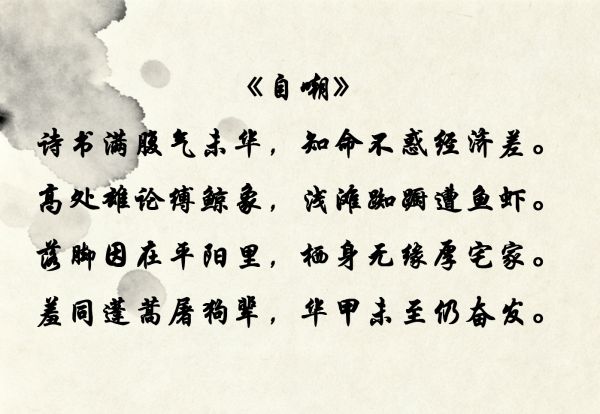 《自嘲》
诗书满腹气未华，知命不惑经济差。
高处雄论缚鲸象，浅滩踟蹰遭鱼虾。
落脚因在平阳里，栖身无缘厚宅家。
羞同蓬蒿屠狗辈，华甲未至仍奋发。